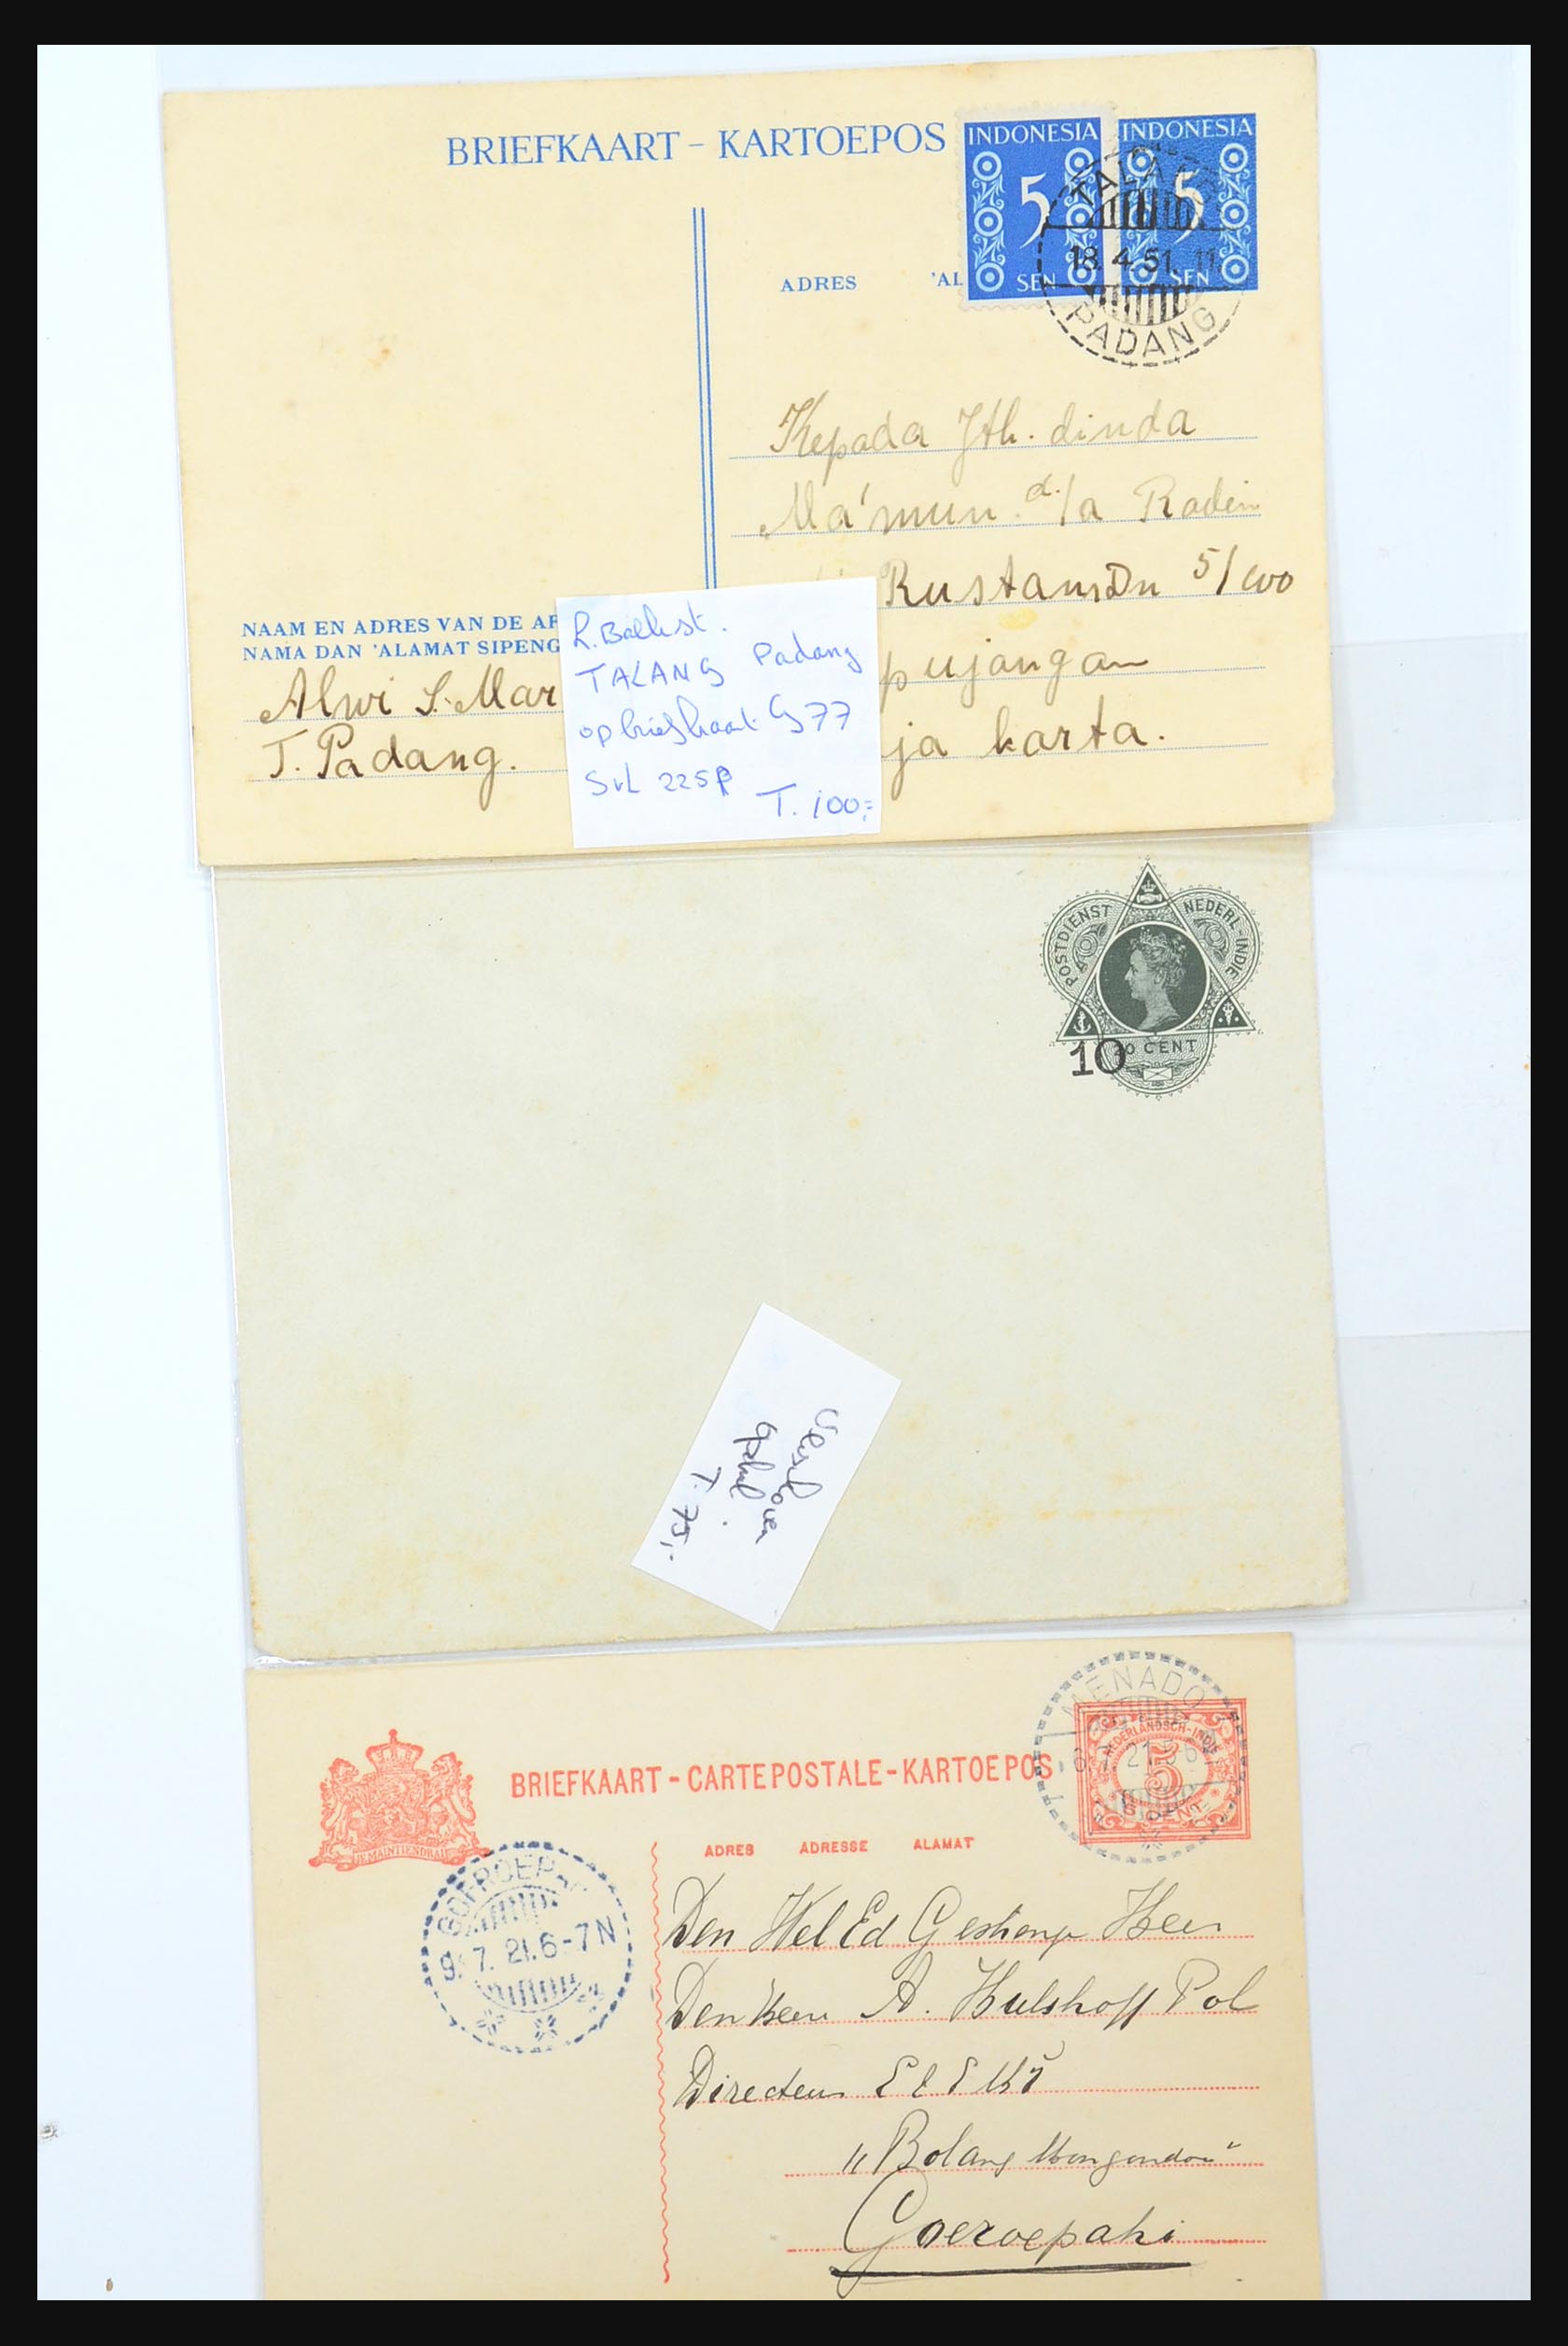 BRIEFKAART - KARTOEPOS
INDONESIA
5
SEN
INDONESIA
5
SEN
TALA
18.4.51. 11
PADANG
ADRES 'AL
Kepada Jth. dinda
Ma'mun. d/a Raden
Rustam Dn 5/
pujangan
ja karta.
NAAM EN ADRES VAN DE AF
NAMA DAN 'ALAMAT SIPENG
Alwi S. Mar
T. Padang.
TALANG Padang
op briefkaart G77
SvL 225P
T. 100,=
POSTDIENST NEDERL-INDIE
10 CENT
10
T. 75,-
MENADO
NEDERLANDSCH-INDIE
5
BRIEFKAART - CARTE POSTALE - KARTOEPOS
JE MAINTIENDRAI
ADRES ADRESSE ALAMAT
GOEROEP
9.7.21.6-7N
Den Wel Ed Heer
Den Heer A. Hulshoff Pol
Directeur
"Bolang Mongondou"
Goeroepahi